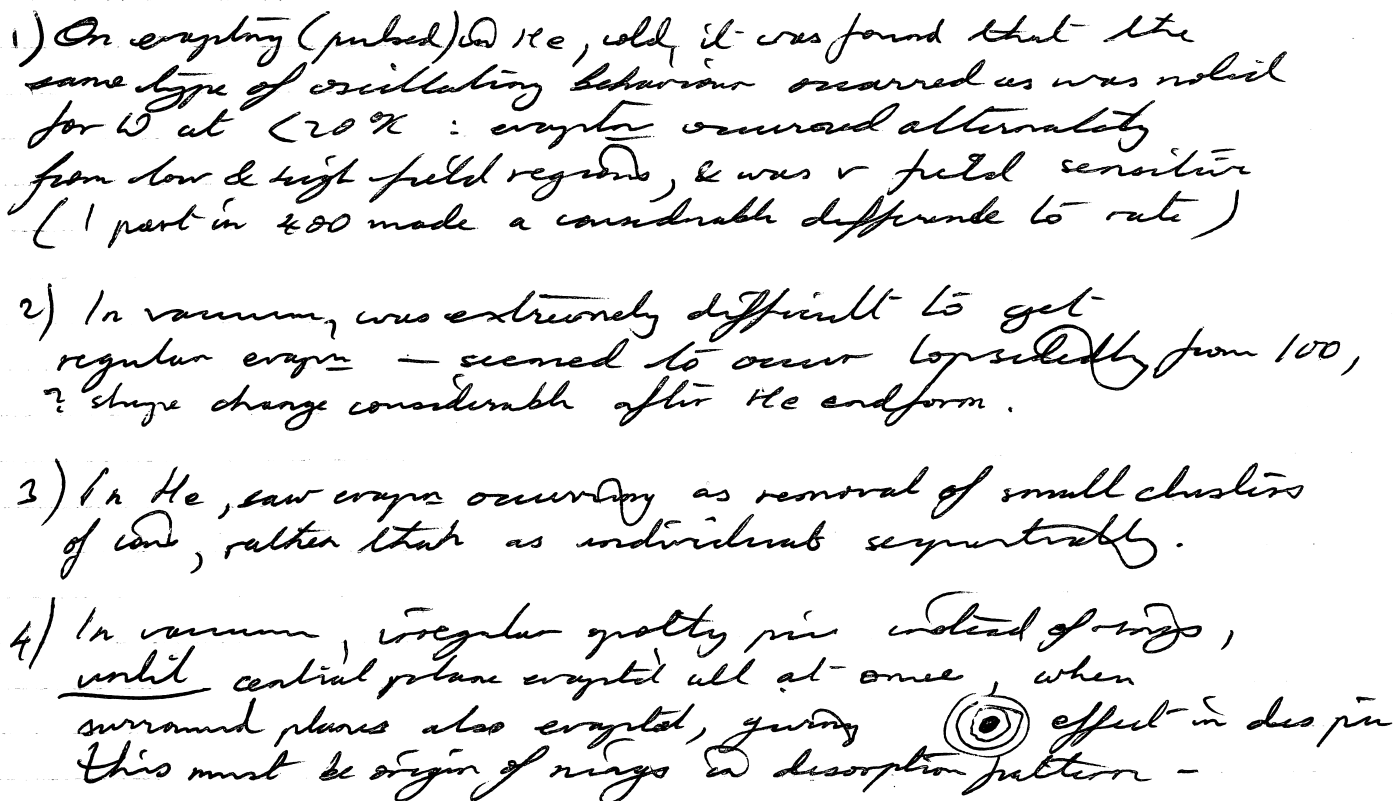 1) On evaptng (pulsed) in He, cold, it was found that the
same type of oscillating behaviour occurred as was noted
for W at <20°K : evaptn occurred alternately
from low & high field regions, & was v field sensitive
(1 part in 400 made a considerable difference to rate)
2) In vacuum, was extremely difficult to get
regular evapn — seemed to occur lopsidedly from 100,
? shape change considerable after He endform.
3) In He, saw evapn occurring as removal of small clusters
of ions, rather than as individuals sequentially.
4) In vacuum, irregular spotty pic instead of rings,
until central plane evaptd all at once, when
surround planes also evaptd, giving effect in des pic
this must be origin of rings in desorption pattern -